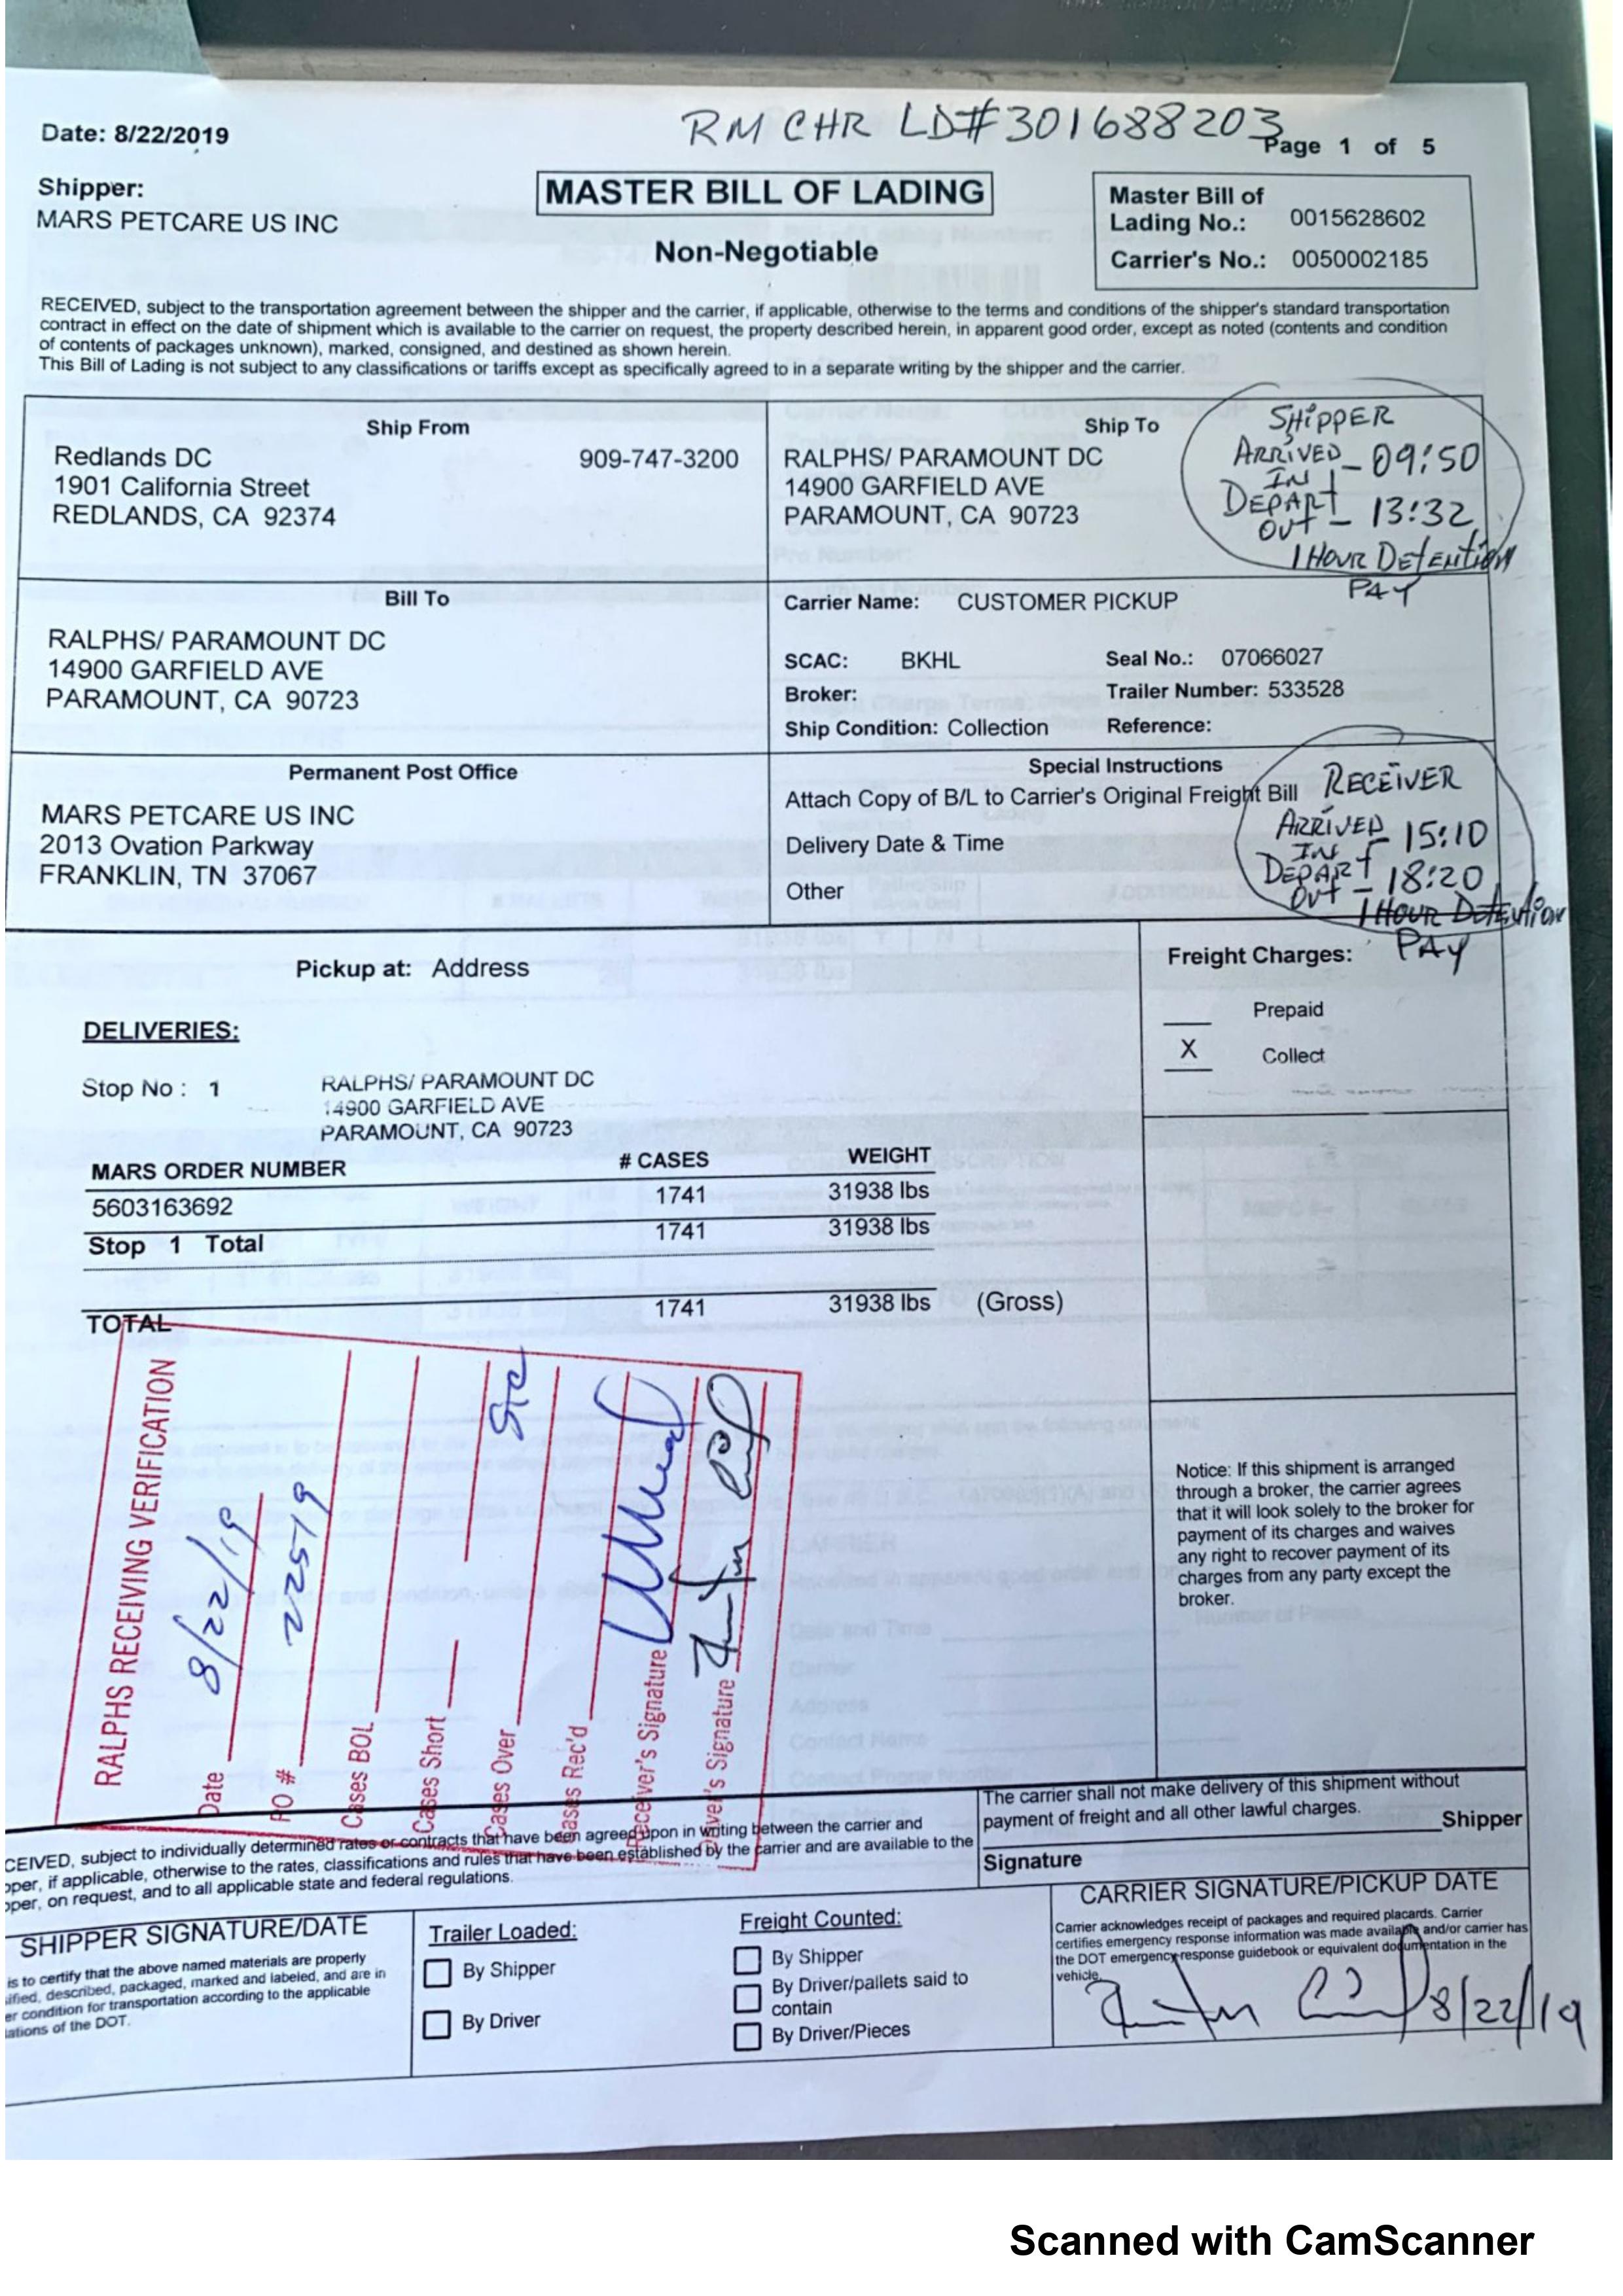 RM CHR LD#301688203
Date: 8/22/2019
Page 1 of 5
Shipper:
MARS PETCARE US INC
MASTER BILL OF LADING
Non-Negotiable
Master Bill of
Lading No.: 0015628602
Carrier's No.: 0050002185
RECEIVED, subject to the transportation agreement between the shipper and the carrier, if applicable, otherwise to the terms and conditions of the shipper's standard transportation
contract in effect on the date of shipment which is available to the carrier on request, the property described herein, in apparent good order, except as noted (contents and condition
of contents of packages unknown), marked, consigned, and destined as shown herein.
This Bill of Lading is not subject to any classifications or tariffs except as specifically agreed to in a separate writing by the shipper and the carrier.
Ship From
Redlands DC 909-747-3200
1901 California Street
REDLANDS, CA 92374
Ship To
RALPHS/ PARAMOUNT DC
14900 GARFIELD AVE
PARAMOUNT, CA 90723
SHIPPER
ARRIVED
IN - 09:50
DEPART
OUT - 13:32
1 HOUR DETENTION
PAY
Bill To
RALPHS/ PARAMOUNT DC
14900 GARFIELD AVE
PARAMOUNT, CA 90723
Carrier Name: CUSTOMER PICKUP
SCAC: BKHL Seal No.: 07066027
Broker: Trailer Number: 533528
Ship Condition: Collection Reference:
Permanent Post Office
MARS PETCARE US INC
2013 Ovation Parkway
FRANKLIN, TN 37067
Special Instructions
Attach Copy of B/L to Carrier's Original Freight Bill
Delivery Date & Time
Other
RECEIVER
ARRIVED
IN - 15:10
DEPART
OUT - 18:20
1 HOUR DETENTION
PAY
Pickup at: Address
Freight Charges:
Prepaid
X Collect
DELIVERIES:
Stop No : 1 RALPHS/ PARAMOUNT DC
14900 GARFIELD AVE
PARAMOUNT, CA 90723
MARS ORDER NUMBER # CASES WEIGHT
5603163692 1741 31938 lbs
Stop 1 Total 1741 31938 lbs
TOTAL 1741 31938 lbs (Gross)
RALPHS RECEIVING VERIFICATION
Date 8/22/19
PO # 22519
Cases BOL
Cases Short
Cases Over
Cases Rec'd
Receiver's Signature
Driver's Signature
Notice: If this shipment is arranged
through a broker, the carrier agrees
that it will look solely to the broker for
payment of its charges and waives
any right to recover payment of its
charges from any party except the
broker.
CEIVED, subject to individually determined rates or contracts that have been agreed upon in writing between the carrier and
pper, if applicable, otherwise to the rates, classifications and rules that have been established by the carrier and are available to the
pper, on request, and to all applicable state and federal regulations.
The carrier shall not make delivery of this shipment without
payment of freight and all other lawful charges.
Shipper
Signature
SHIPPER SIGNATURE/DATE
is to certify that the above named materials are properly
ified, described, packaged, marked and labeled, and are in
er condition for transportation according to the applicable
ations of the DOT.
Trailer Loaded:
By Shipper
By Driver
Freight Counted:
By Shipper
By Driver/pallets said to
contain
By Driver/Pieces
CARRIER SIGNATURE/PICKUP DATE
Carrier acknowledges receipt of packages and required placards. Carrier
certifies emergency response information was made available and/or carrier has
the DOT emergency response guidebook or equivalent documentation in the
vehicle.
8/22/19
Scanned with CamScanner